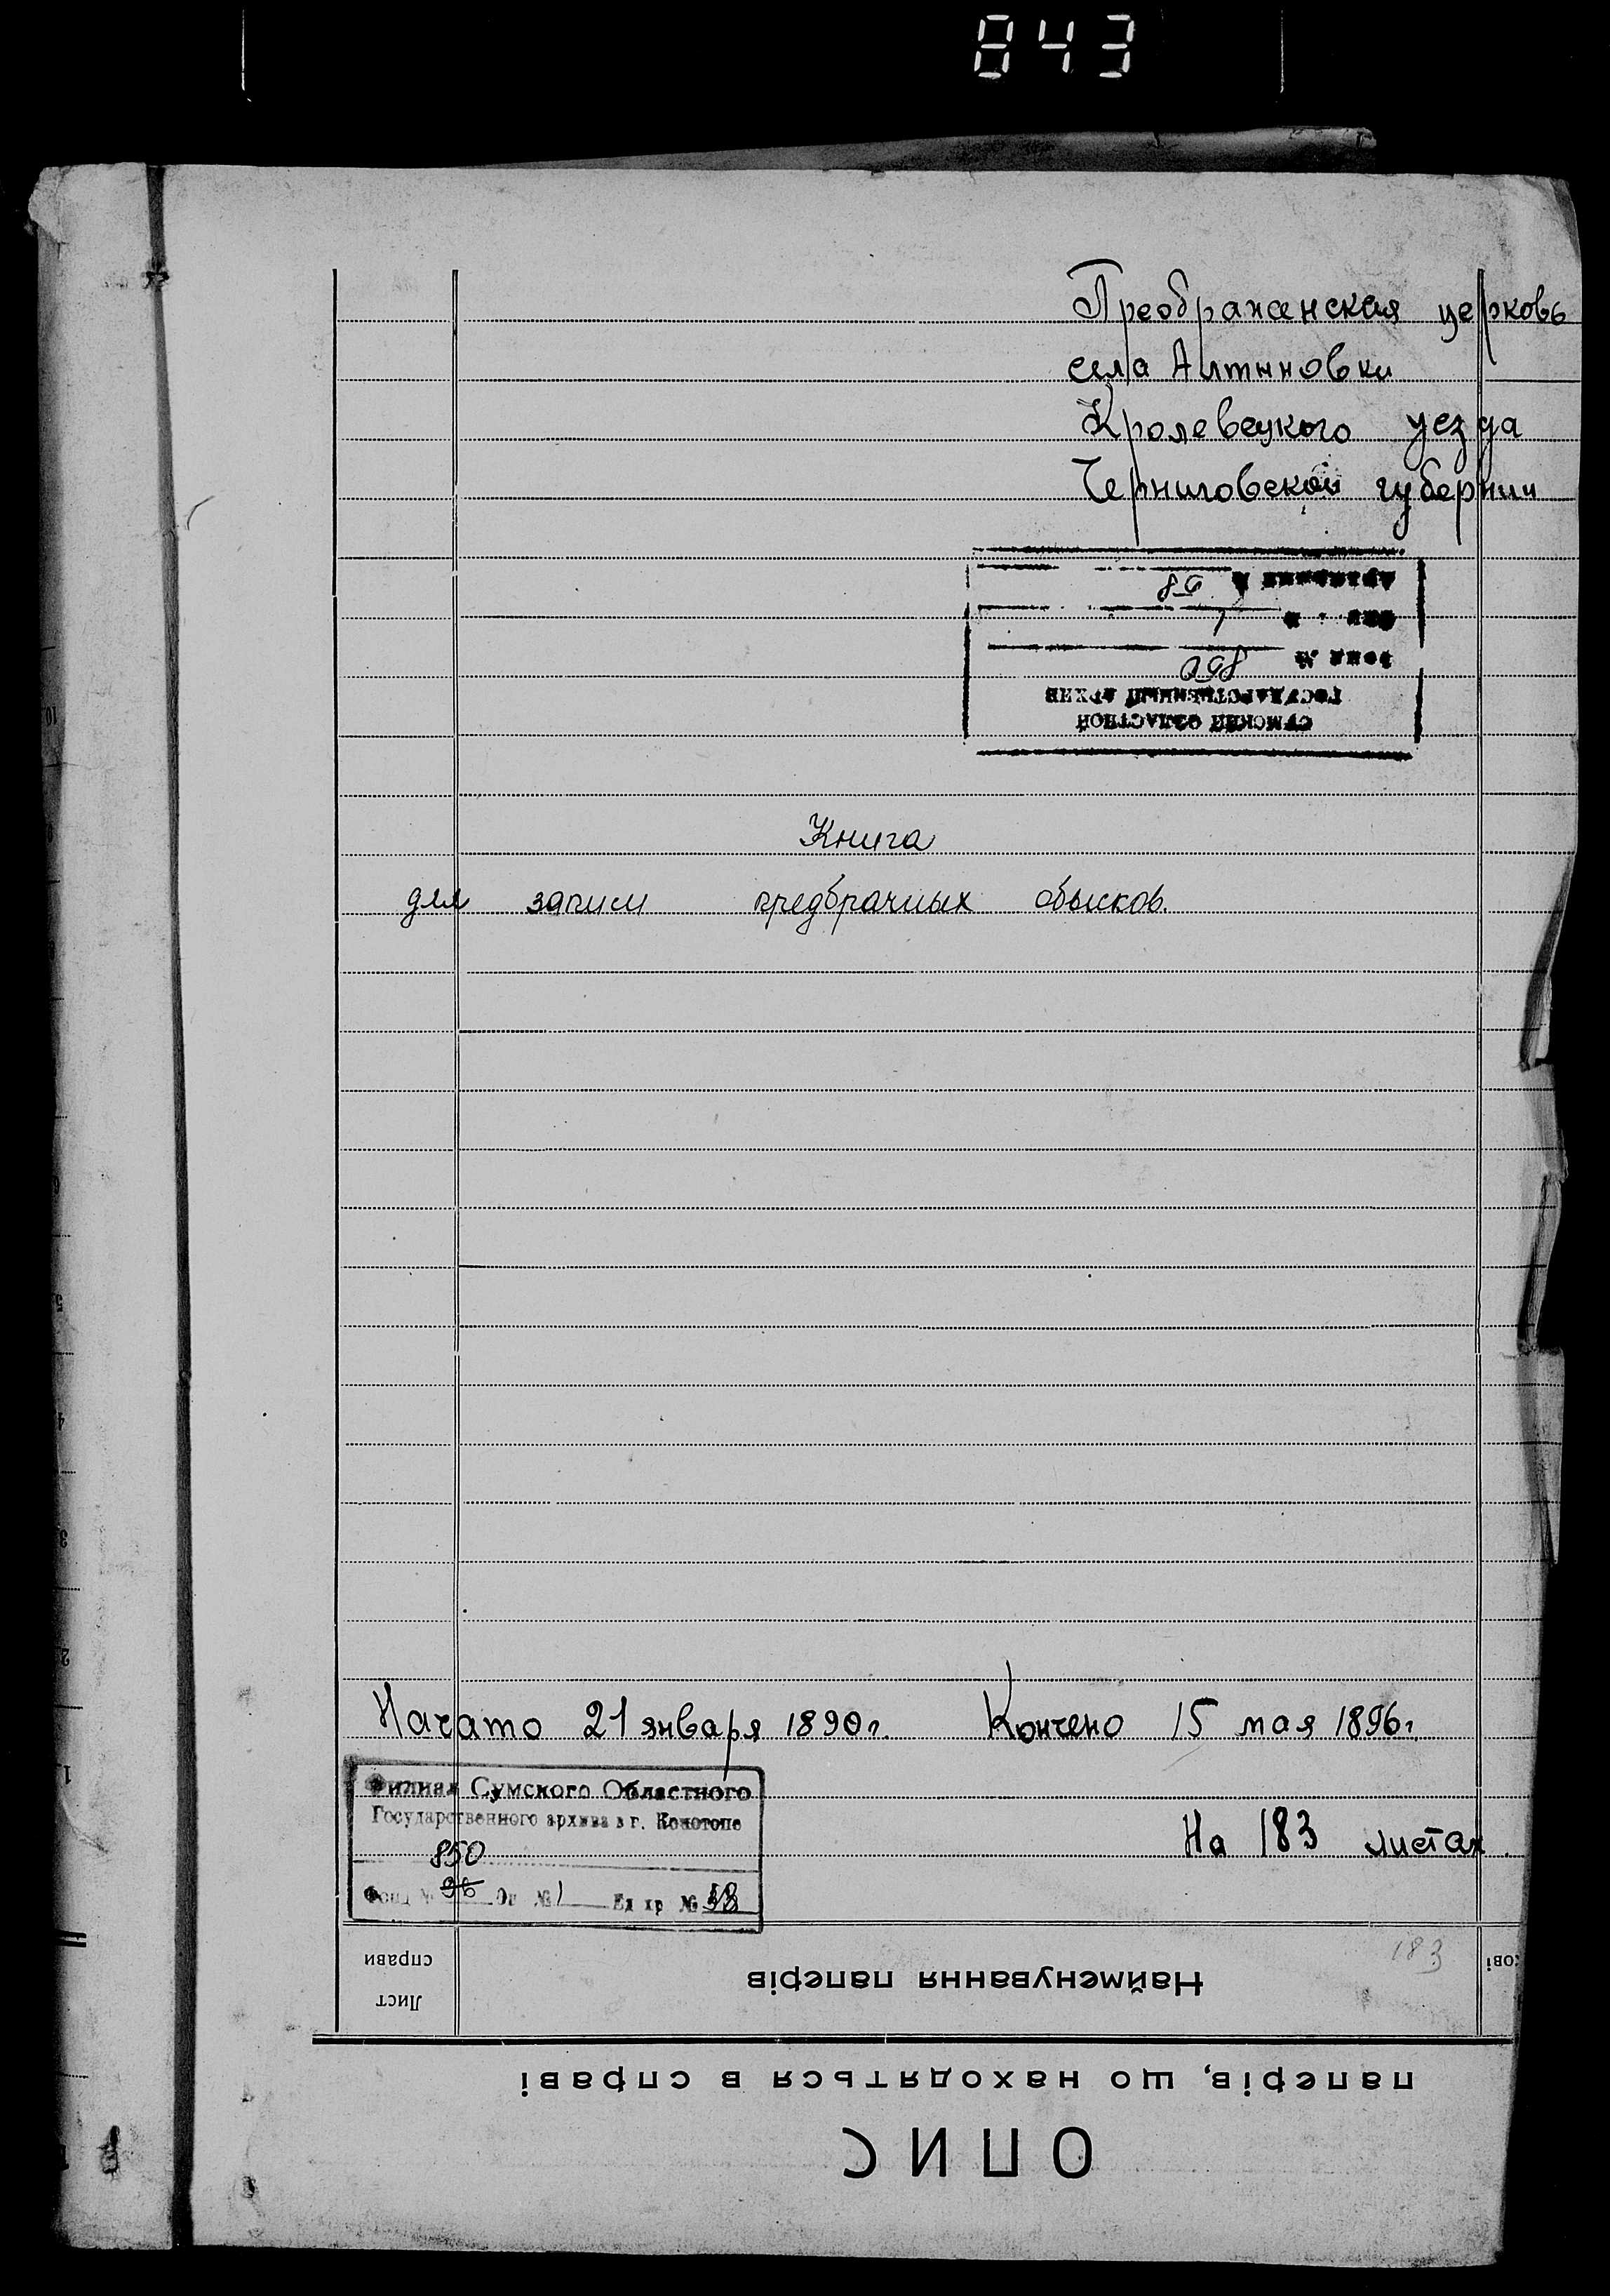 843
Преображенская церковь
села Алтыновки
Кролевецкого уезда
Черниговской губернии
СУМСКИЙ ОБЛАСТНОЙ
ГОСУДАРСТВЕННЫЙ АРХИВ
Фонд № 850
1
58
Книга
для записи предбрачных обысков.
Начато 21 января 1890 г. Кончено 15 мая 1896 г.
Филиал Сумского Областного
Государственного архива в г. Конотопе
850
Фонд № 96 Оп №1 Ед хр № 58
На 183 листах.
183
Лист
справи
Найменування паперів
ОПИС
паперів, що находяться в справі